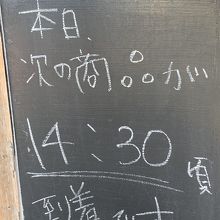 本日、
次の商品が
14:30
頃
到着